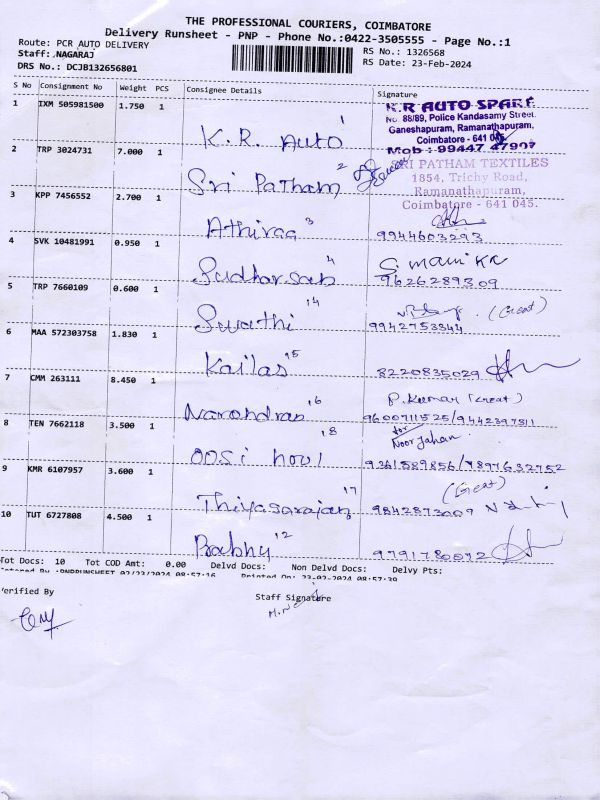 THE PROFESSIONAL COURIERS, COIMBATORE
Delivery Runsheet - PNP - Phone No.:0422-3505555 - Page No.:1
Route: PCR AUTO DELIVERY
RS No.: 1326568
Staff: NAGARAJ
RS Date: 23-Feb-2024
DRS No.: DCJB132656801
S No Consignment No Weight PCS Consignee Details Signature
1 IXM 505981500 1.750 1 K.R. Auto 1
K.R AUTO SPARE
No. 88/89, Police Kandasamy Street,
Ganeshapuram, Ramanathapuram,
Coimbatore - 641 045
Mob : 99447 47907
2 TRP 3024731 7.000 1 Sri Patham 2
SRI PATHAM TEXTILES
1854, Trichy Road,
Ramanathapuram,
Coimbatore - 641 045.
3 KPP 7456552 2.700 1 Athiraa 3
9944603293
4 SVK 10481991 0.950 1 Sudharsan 4
9626289309
5 TRP 7660109 0.600 1 Swathi 14
9942753844
6 MAA 572303758 1.830 1 Kailas 15 8220835029
7 CMM 263111 8.450 1 Narendran 16 P. Kumar
9600711525/9442397511
8 TEN 7662118 3.500 1 18 for Noor Jahan
9361589856/7897632752
9 KMR 6107957 3.600 1 Thiyagarajan 17 9842873009
10 TUT 6727808 4.500 1 Prabhu 12 9791780072
Tot Docs: 10 Tot COD Amt: 0.00 Delvd Docs: Non Delvd Docs: Delvy Pts:
:PNPRUNSHEET 02/23/2024 08:57:16 Printed On: 23-02-2024 08:57:39
Verified By
Staff Signature